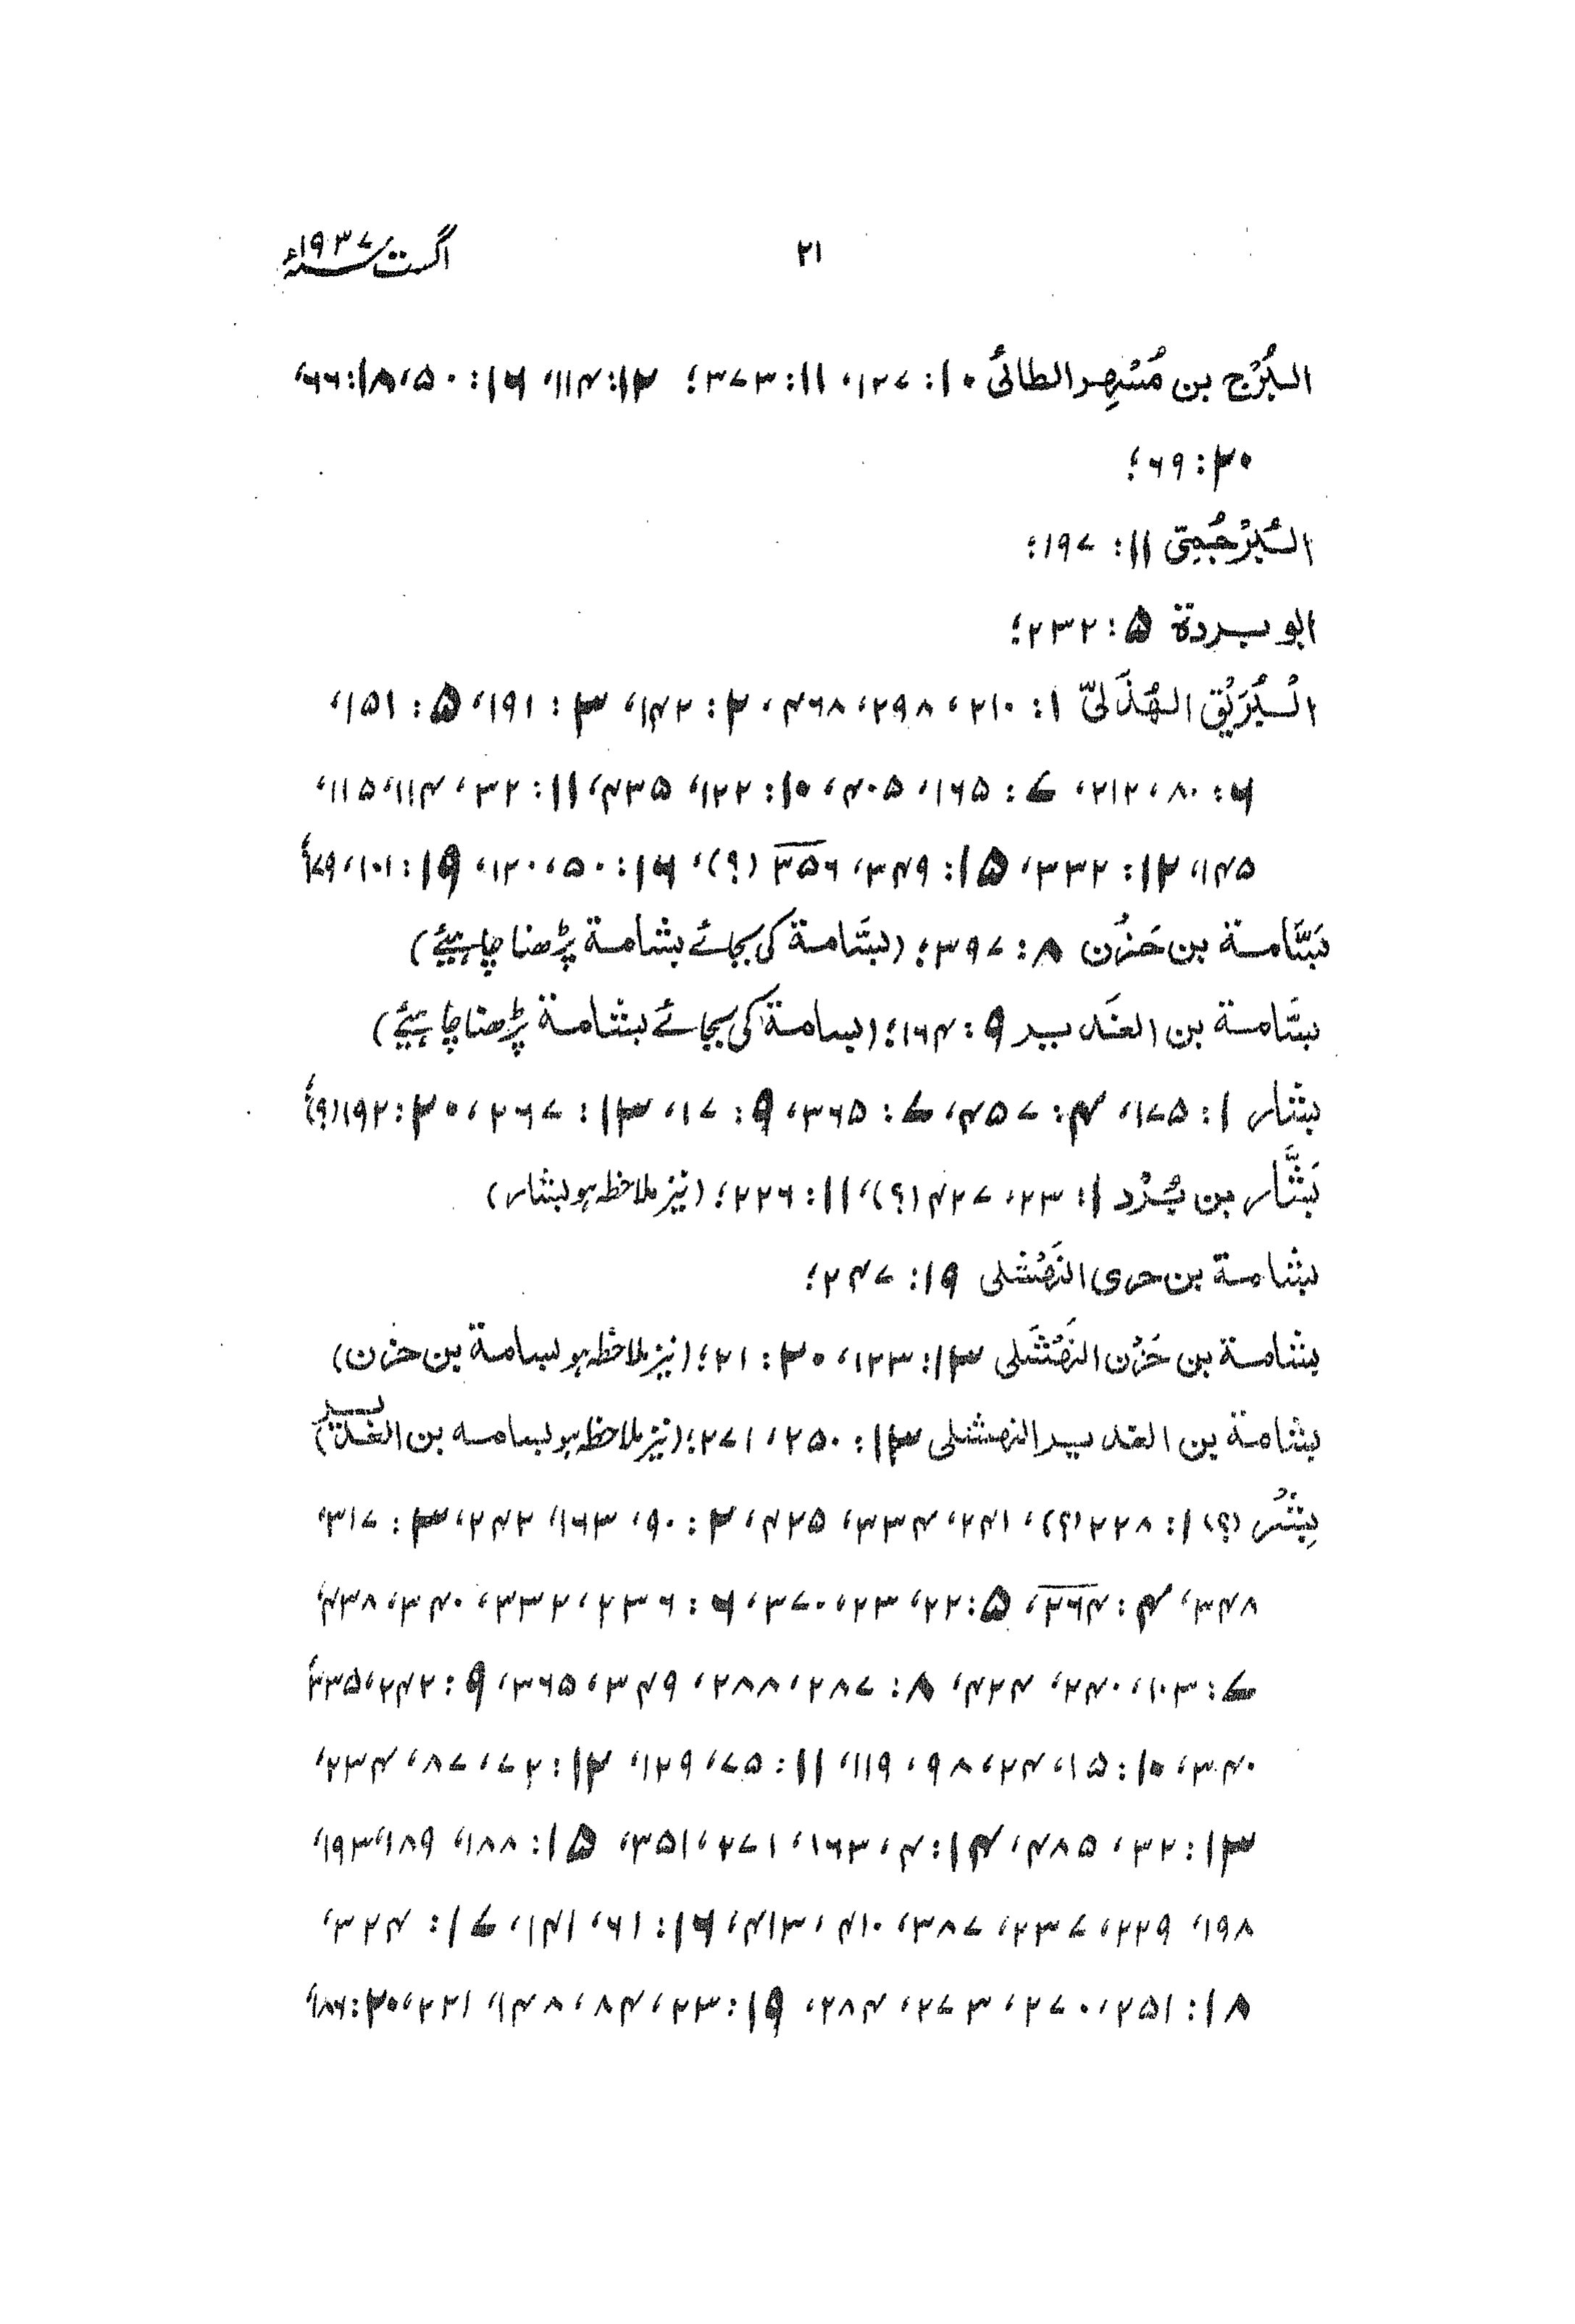 ۲۱ اگست سنہ ۱۹۳۷ء
البُرْج بن مُسْهِر الطائیُ ۱۰: ۱۲۷، ۱۱: ۳۷۳؛ ۱۲: ۱۱۴، ۱۶: ۵۰، ۱۸: ۶۶،
۲۰: ۶۹؛
البُرْجُمِیّ ۱۱: ۱۹۷؛
ابو بردة ۵: ۲۳۲؛
الْبُرَيْق الهُذَلیّ ۱: ۲۱۰، ۲۹۸، ۴۶۸، ۲: ۱۴۲، ۳: ۱۹۱، ۵: ۱۵۱،
۶: ۸۰، ۲۱۲، ۷: ۱۶۵، ۴۰۵، ۱۰: ۱۲۲، ۴۳۵، ۱۱: ۳۲، ۱۱۴، ۱۱۵،
۱۴۵، ۱۲: ۳۳۲، ۱۵: ۳۴۹، ۳۵۶ (؟)، ۱۶: ۵۰، ۱۲۰، ۱۹: ۱۰۱، ۱۷۹؛
بَسَّامة بن حَزْن ۸: ۳۹۷؛ (بسَّامة کی بجائے بشامة پڑھنا چاہیئے)
بسَامة بن الغَدیر ۹: ۱۶۴؛ (بسامة کی بجائے بشامة پڑھنا چاہیئے)
بشار ۱: ۱۷۵، ۴: ۴۵۷، ۷: ۳۶۵، ۹: ۱۷، ۱۳: ۲۶۷، ۲۰: ۱۹۲(؟)؛
بَشَّار بن بُرْد ۱: ۲۳، ۴۲۷ (؟)، ۱۱: ۲۲۶؛ (نیز ملاحظہ ہو بشار)
بشامة بن حری النَهْشلی ۱۹: ۲۴۷؛
بشامة بن حَزْن النَهْشَلی ۱۳: ۱۲۳، ۲۰: ۲۱؛ (نیز ملاحظہ ہو بسامة بن حزن)
بشامة بن الغدیر النهشلی ۱۳: ۲۵۰، ۲۷۱؛ (نیز ملاحظہ ہو بسامه بن الغدیر)
بِشْر (؟) ۱: ۲۲۸ (؟)، ۲۴۱، ۳۳۴، ۴۲۵، ۲: ۹۰، ۱۶۳، ۲۴۲، ۳: ۳۱۷،
۳۴۸، ۴: ۲۶۴، ۵: ۲۲، ۲۳، ۳۷۰، ۶: ۲۳۶، ۳۳۲، ۳۴۰، ۴۳۸،
۷: ۱۰۳، ۲۴۰، ۴۲۴، ۸: ۲۸۷، ۲۸۸، ۳۴۹، ۳۶۵، ۹: ۲۴۲، ۳۳۵،
۳۴۰، ۱۰: ۱۵، ۲۴، ۸۹، ۱۱۹، ۱۱: ۷۵، ۱۲۹، ۱۲: ۷۲، ۷۸، ۲۳۴،
۱۳: ۳۲، ۴۸۵، ۱۴: ۴، ۱۶۳، ۲۷۱، ۳۵۱، ۱۵: ۱۸۸، ۱۷۹، ۱۹۳،
۱۹۸، ۲۲۹، ۲۳۷، ۳۸۷، ۴۱۰، ۴۱۳، ۱۶: ۶۱، ۱۴۱، ۱۷: ۳۲۴،
۱۸: ۲۵۱، ۲۷۰، ۲۷۳، ۲۸۴، ۱۹: ۲۳، ۴۸، ۱۴۸، ۲۲۱، ۲۰: ۱۸۶،